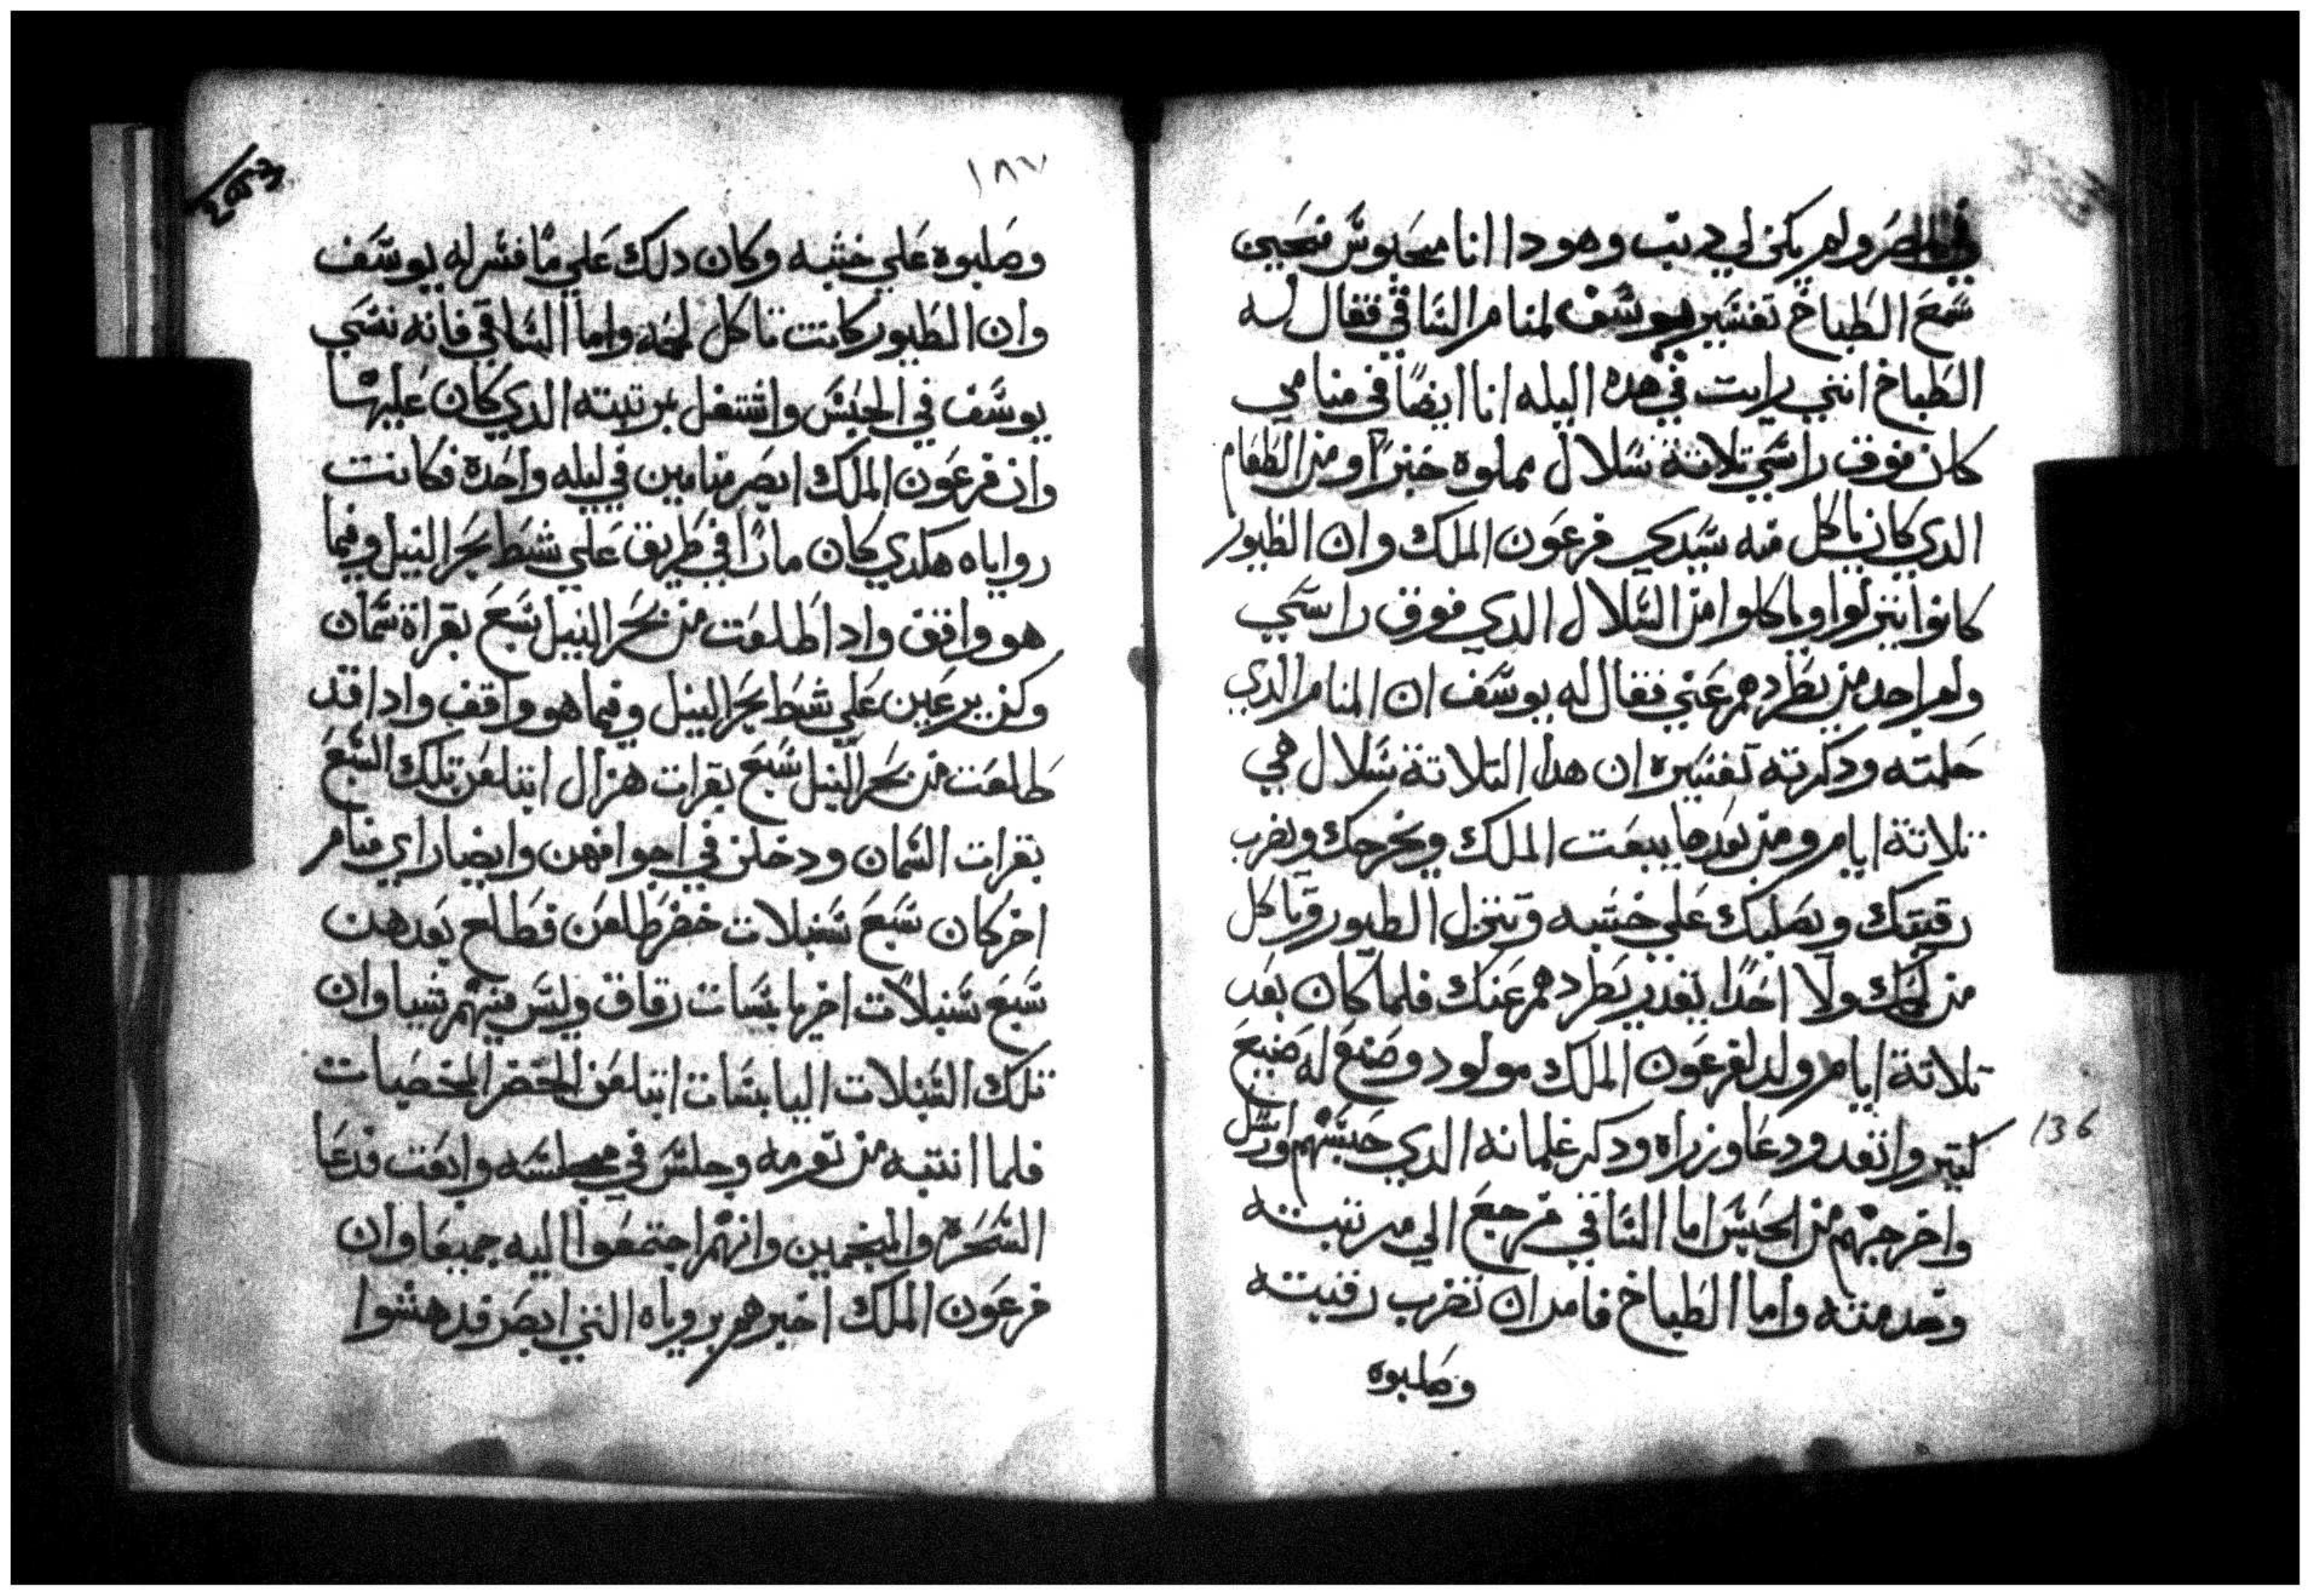 في مصر ولم يكن لي دنب وهودا انا محبوس فحين
سمع الطباخ تفسير يوسف لمنام الساقي فقال له
الطباخ انني رايت في هده اليله انا ايضًا في منامي
كان فوق راسي تلاتة سلال مملوه خبزًا ومن الطعام
الدي كان ياكل منه سيدي فرعون الملك وان الطيور
كانوا ينزلوا وياكلوا من السلال الدي فوق راسي
ولم احد من يطردهم عني فقال له يوسف ان المنام الدي
حلمته ودكرته تفسيره ان هدا التلاتة سلال هي
تلاتة ايام ومن بعدها يبعت الملك ويخرجك ويضرب
رقبتك ويصلبك علي خشبه وتنزل الطيور وتاكل
من لحمك ولا احدًا يقدر يطردهم عنك فلما كان بعد
تلاتة ايام ولد لفرعون الملك مولود وصنع له صنيع
كتير وانفد ودعا وزراه ودكر غلمانه الدي حبسهم وارسل
واخرجهم من الحبس اما الساقي فرجع الي مرتبته
وخدمته واما الطباخ فامر ان تضرب رقبته
وصلبوه
136
١٨٧
وصلبوه علي خشبه وكان دلك علي ما فسر له يوسف
وان الطيور كانت تاكل لحمه واما الساقي فانه نسي
يوسف في الحبس واشتغل بمرتبته الدي كان عليها
وان فرعون الملك ابصر منامين في ليله واحدة فكانت
روياه هكدي كان مارًا في طريق علي شط بحر النيل وفيما
هو واقف وادا طلعت من بحر النيل سبع بقراة سمان
وكن يرعين علي شط بحر النيل وفيما هو واقف وادا قد
طلعت من بحر النيل سبع بقرات هزال ابتلعن تلك السبع
بقرات السمان ودخلن في اجوافهن وايضا راي منام
اخر كان سبع سنبلات خضر طلعن فطلع بعدهن
سبع سنبلات اخر يابسات رقاق وليس فيهم شيا وان
تلك السنبلات اليابسات ابتلعن الخضر المخصبات
فلما انتبه من نومه وجلس في مجلسه وابعت فدعا
السحرة والمنجمين وانهم اجتمعوا اليه جميعا وان
فرعون الملك اخبرهم بروياه التي ابصر فدهشوا